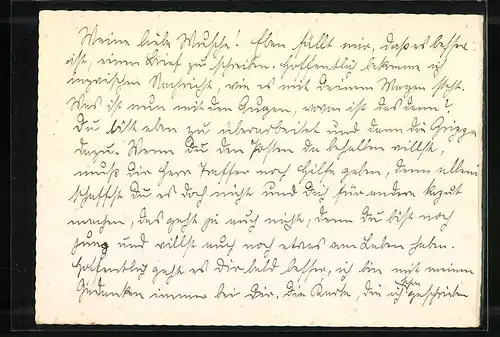 Meine liebe Musche! Eben fällt mir, daß es besser
ist, einen Brief zu schreiben. Hoffentlich bekomme ich
inzwischen Nachricht, wie es mit Deinem Magen steht.
Was ist nun mit den Augen, wovon ist das denn?
Du bist eben zu überarbeitet und dann die Grippe
dazu. Wenn Du den Posten da behalten willst,
muß Dir Herr noch Hilfe geben, denn allein
schaffst Du es doch nicht und Dich für andere kaput
machen, das geht ja auch nicht, denn Du bist noch
jung und willst auch noch etwas vom Leben haben.
Hoffentlich geht es Dir bald besser, ich bin mit meinen
Gedanken immer bei Dir. Die Karte, die ich schon geschrieben